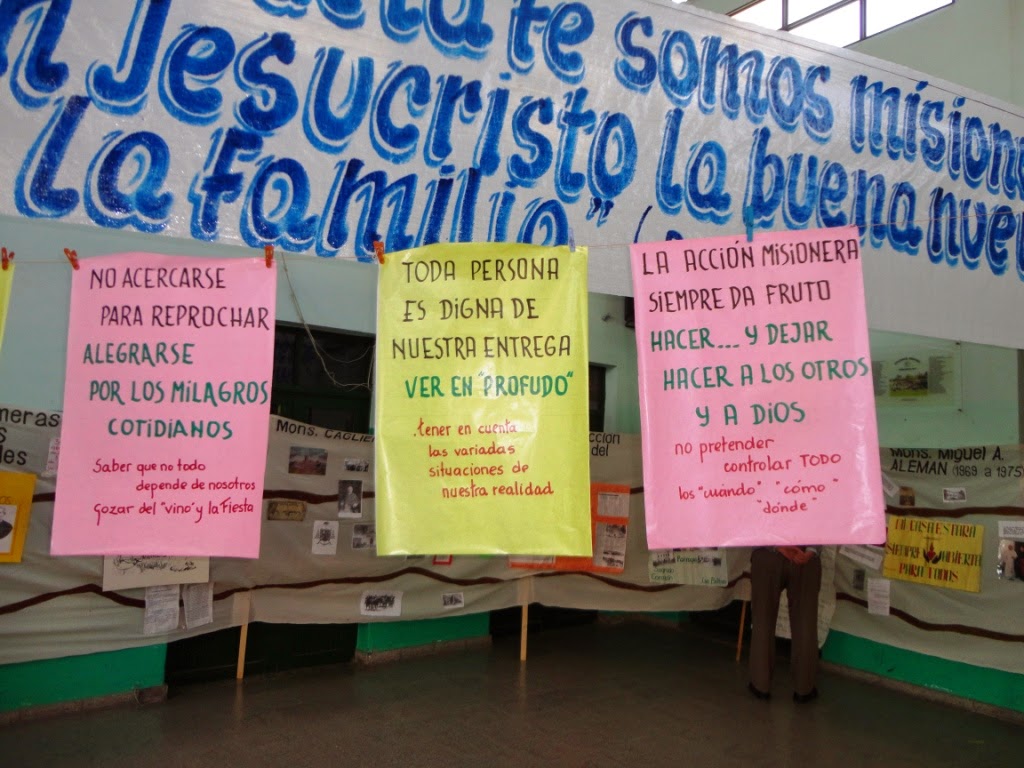 te somos misione
Jesucristo la buena nuev
La familia" (
NO ACERCARSE
PARA REPROCHAR
ALEGRARSE
POR LOS MILAGROS
COTIDIANOS
Saber que no todo
depende de nosotros
Gozar del "vino" y la Fiesta
TODA PERSONA
ES DIGNA DE
NUESTRA ENTREGA
VER EN "PROFUDO"
.tener en cuenta
las variadas
situaciones de
nuestra realidad
LA ACCIÓN MISIONERA
SIEMPRE DA FRUTO
HACER... Y DEJAR
HACER A LOS OTROS
Y A DIOS
no pretender
controlar TODO
los "cuándo" "cómo"
"dónde"
meras
les
Mons. CAGLIE
ccion
del
Mons. Miguel A.
ALEMAN (1969 a 1975)
MI CASA ESTARA
SIEMPRE ABIERTA
PARA TODOS